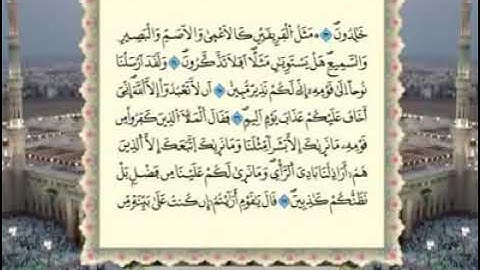 خَٰلِدُونَ ۝ ۞ مَثَلُ ٱلْفَرِيقَيْنِ كَٱلْأَعْمَىٰ وَٱلْأَصَمِّ وَٱلْبَصِيرِ
وَٱلسَّمِيعِ ۚ هَلْ يَسْتَوِيَانِ مَثَلًا ۚ أَفَلَا تَذَكَّرُونَ ۝ وَلَقَدْ أَرْسَلْنَا
نُوحًا إِلَىٰ قَوْمِهِۦٓ إِنِّى لَكُمْ نَذِيرٌ مُّبِينٌ ۝ أَن لَّا تَعْبُدُوٓا۟ إِلَّا ٱللَّهَ ۖ إِنِّىٓ
أَخَافُ عَلَيْكُمْ عَذَابَ يَوْمٍ أَلِيمٍ ۝ فَقَالَ ٱلْمَلَأُ ٱلَّذِينَ كَفَرُوا۟ مِن
قَوْمِهِۦ مَا نَرَىٰكَ إِلَّا بَشَرًا مِّثْلَنَا وَمَا نَرَىٰكَ ٱتَّبَعَكَ إِلَّا ٱلَّذِينَ
هُمْ أَرَاذِلُنَا بَادِىَ ٱلرَّأْىِ وَمَا نَرَىٰ لَكُمْ عَلَيْنَا مِن فَضْلٍۭ بَلْ
نَظُنُّكُمْ كَٰذِبِينَ ۝ قَالَ يَٰقَوْمِ أَرَءَيْتُمْ إِن كُنتُ عَلَىٰ بَيِّنَةٍ مِّن